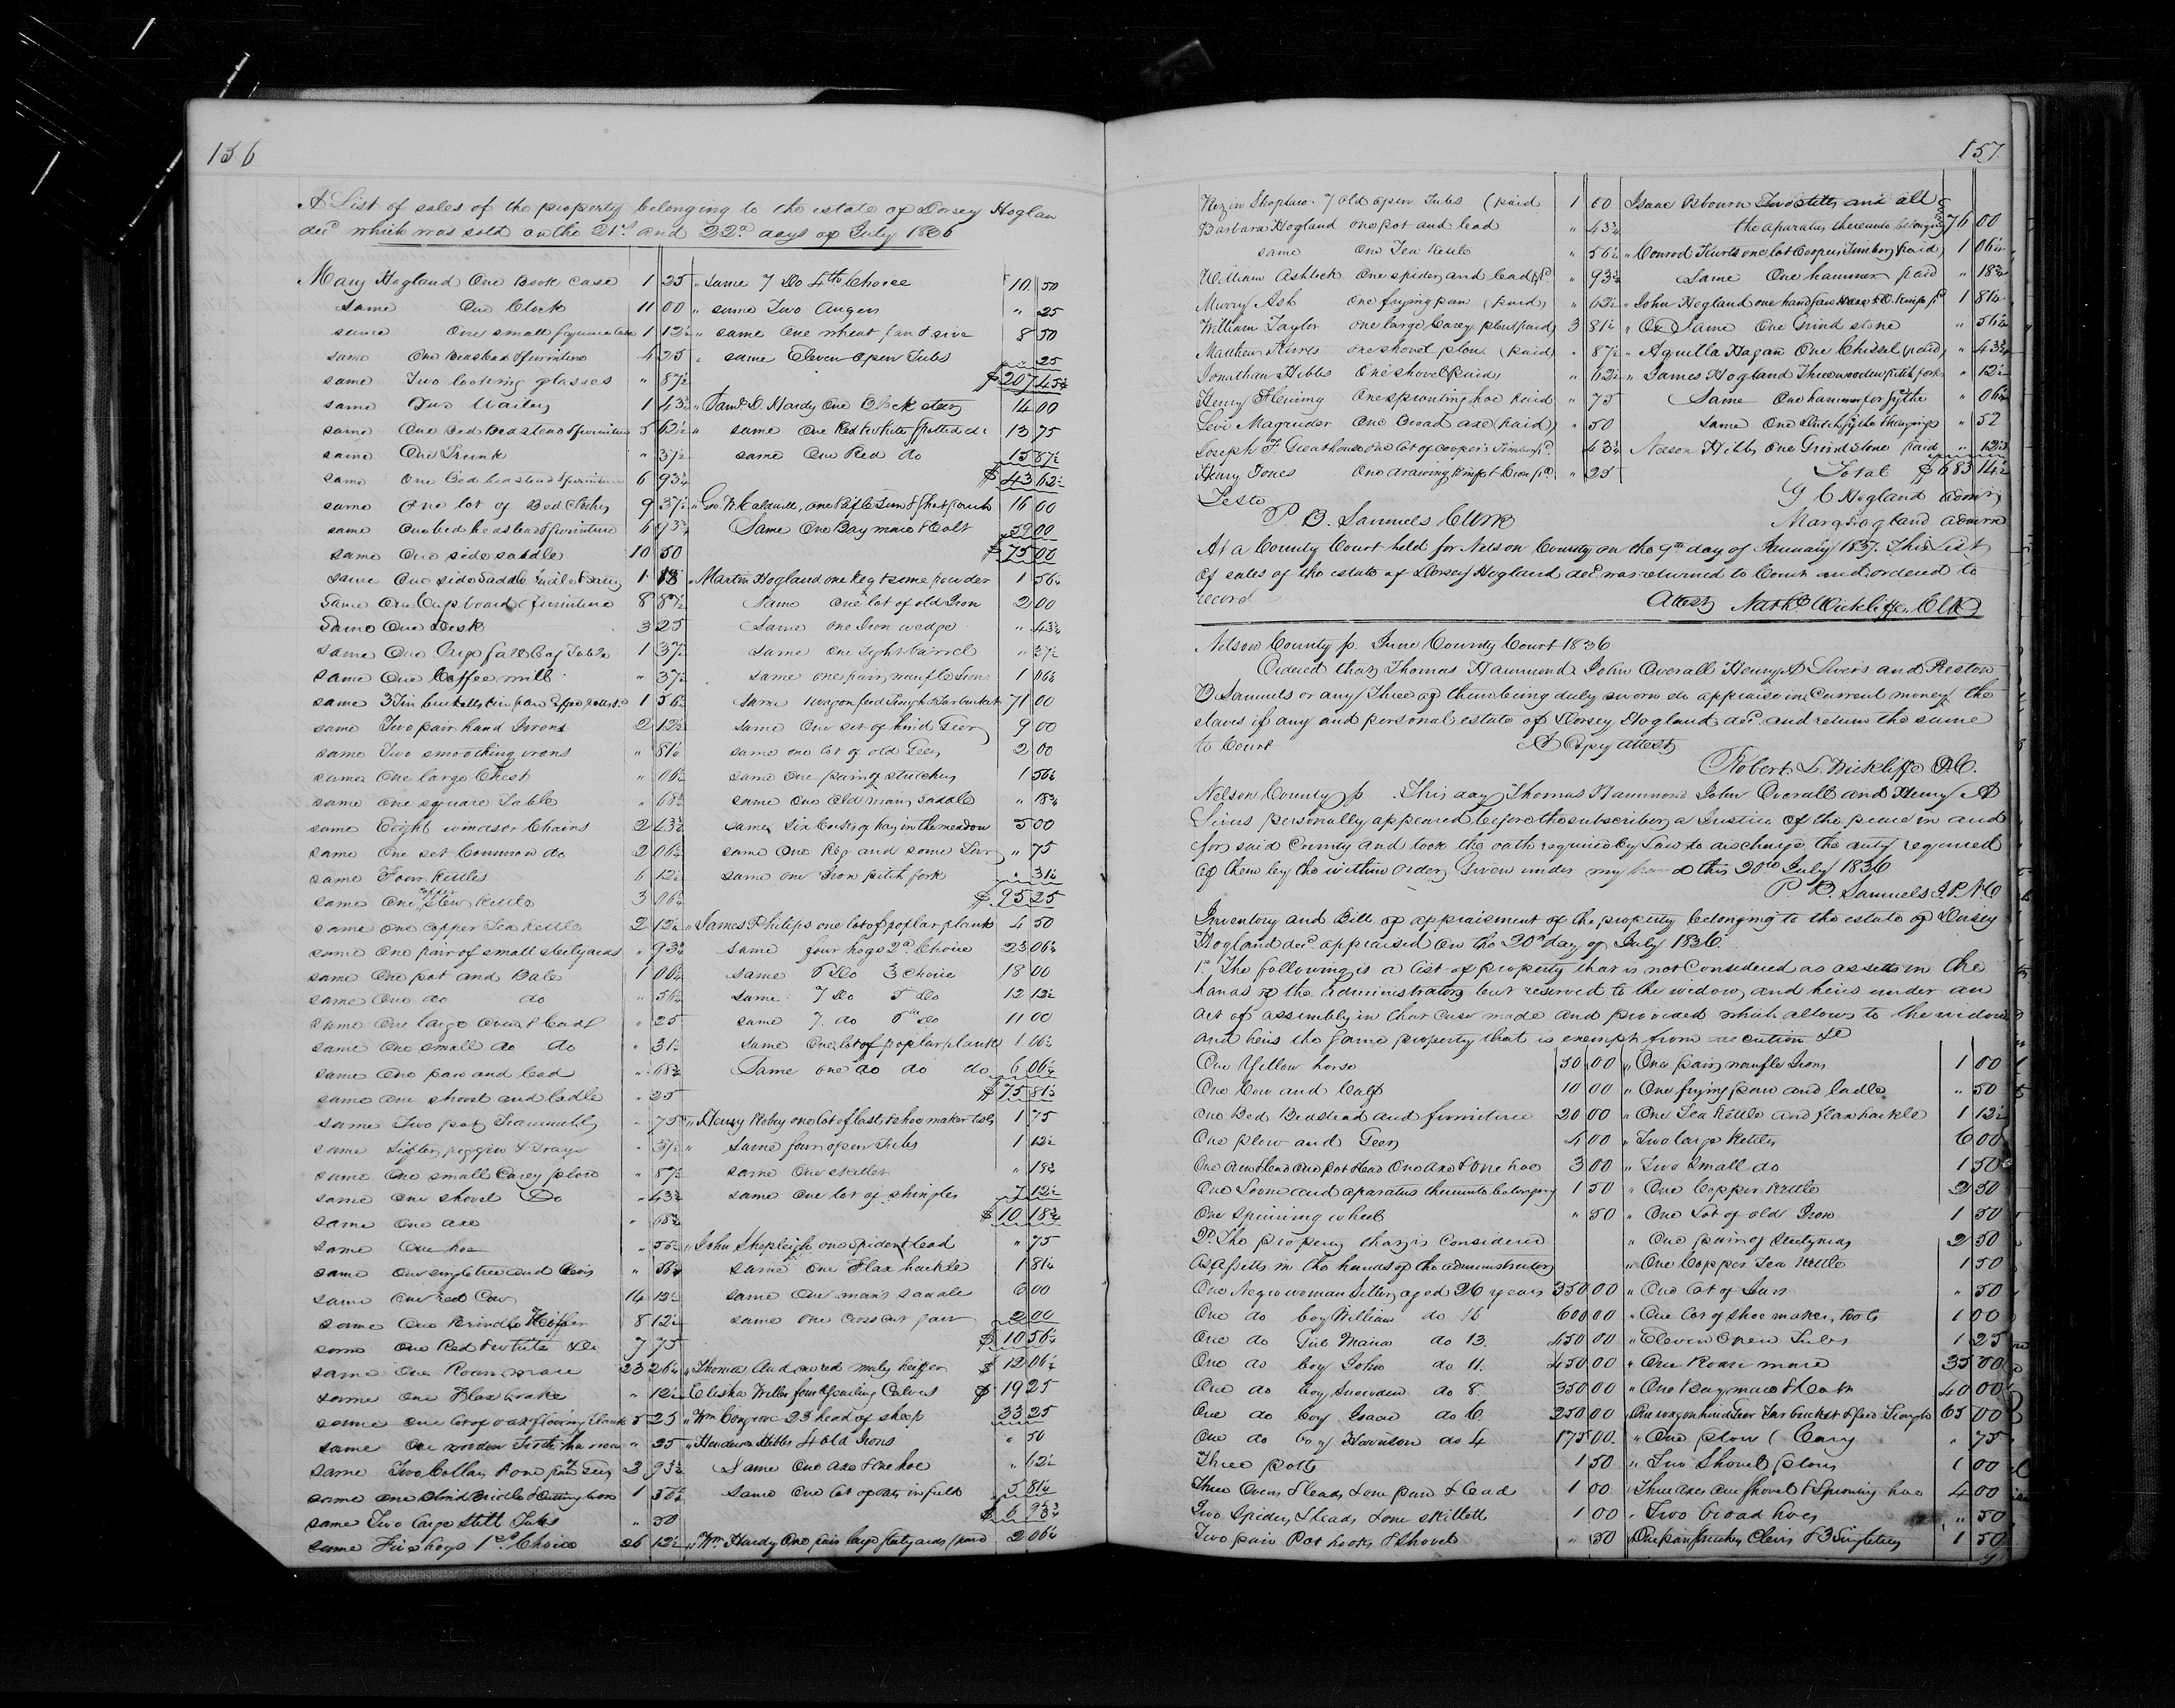 156
A List of sales of the property belonging to the estate of Dorsey Hoglan
decd which was sold on the 21st and 22d days of July 1836
Mary Hogland One Book case 1 25
same One Clock 11 00
same One small 1 12½
same One Beadstead & furniture 4 25
same Two looking glasses " 87½
same Two Waiters 1 43¾
same One Bed Beadstead & furniture 5 62½
same One Trunk " 37½
same One Bed beadstead & furniture 6 93¾
same One lot of Bed Clothes 9 37½
same One bed beadstead & furniture 6 93¾
same One side saddle 10 50
same One side saddle 1 18
same One Cupboard & furniture 8 87½
same One Desk 3 25
same One large fall leaf Table 1 37½
same One Coffee mill " 37½
same 3 Tin bucketts 1 56¼
same Two pair hand Irons 2 12½
same Two smoothing irons " 81¼
same One large Chest " 06¼
same One square Table " 68¾
same Eight windsor Chairs 2 43¾
same One set Common do 2 06¼
same Four Kettles 6 12½
same One copper stew Kettle 3 06¼
same one copper Tea Kettle 2 12½
same One pair of small steelyards " 93¾
same One pot and Bale 1 06¼
same One do do " 56¼
same One large Oven & lead " 25
same One small do do " 31¼
same One pan and lead " 68¾
same One shovel and ladle " 25
same Two pot Trammells " 75
same Sifter piggin & Trays " 37½
same One small Carey plow " 87½
same One shovel Do " 43¾
same One axe " 68¾
same One hoe " 56¼
same One singletree and Clevis " 56¼
same One red Cow 14 12½
same One Brindle Heiffer 8 12½
same One Red & white do 7 75
same One Roan mare 23 26¼
same One Flax brake " 12½
same One lot of oak flooring plank 5 25
same One wooden Tooth harrow " 25
same Two Collars & one pair of Geers 2 93¾
same one blind Bridle & 1 56¼
same Two large Still Tubs " 50
same Five hogs 1st Choice 26 12½
" same 7 Do 4th Choice 10 50
" same Two Augers " 25
" same One wheat fan & sive 8 50
" same Eleven open Tubs " 25
$207 45¾
" Saml D. Hardy One Black steer 14 00
" same One Red & white spotted do 13 75
same One Red do 15 87½
$43 62½
" Geo W. Caldwell, one Rifle Gun & shot pouch 16 00
Same One Bay mare & Colt 59 00
$75 00
" Martin Hogland one keg & some powder 1 56¼
Same One lot of old Iron 2 00
Same one Iron wedge " 43¾
same one tight barrel " 37½
same one pair waufle Irons 1 06¼
same 1 wagon feed Trough & Tar bucket 71 00
same One set of hind Geer 9 00
same one lot of old Geer 2 00
same one pair of stretchers 1 56¼
same one old mans saddle " 18¾
same six Cocks of hay in the meadow 5 00
same One Keg and some Tar " 75
same one Iron pitch fork " 31¼
$95 25
" James Philips one lot of poplar plank 4 50
same four hogs 2d Choice 23 06¼
same 6 Do 3 choice 18 00
same 7 Do 5 Do 12 12½
same 7 do 6th Do 11 00
same One lot of poplar plank 1 06¼
Same one do do do 6 06¼
$75 81¼
" Henry Robey one lot of lasts & shoe maker tools 1 75
" same four open Tubs 1 12½
same One skillet " 18¾
same One lot of shingles 7 12½
$10 18¾
" John Shepleigh one spider & lead " 75
same One Flax hackle 1 81¼
same One man's saddle 6 00
same one cross cut saw 2 00
$10 56¼
" Thomas one red muley heiffer $12 06¼
Elisha four Yearling Calves $19 25
" Wm Congrove 23 head of sheep 33 25
" Henderson Hibbs 4 old Irons " 50
Same One axe & one hoe " 62½
same One lot of oats in field 5 81¼
$6 93¾
" Wm Hardy One pair large steelyards (paid 2 06¼
157
Rezin 7 old open Tubs (paid 1 00
Barbara Hogland one pot and lead " 43¾
same One Tea Kettle " 56¼
William Ashlock One spider and lead pd " 93¾
Murry Ash One frying pan (paid) " 62½
William Taylor one large Carey plow (paid) 3 81¼
Matthew one shovel plow (paid) " 87½
Jonathan Hibbs One shovel (paid) " 62½
Henry Fleming One sprouting hoe paid " 75
Levi Magruder One Broad axe (paid) " 50
Joseph F. Greathouse one lot of cooper's Timber pd 43¾
Henry Jones One drawing Knife & Cross pd " 25
Isaac Osbourn Two stills and all
the aparatus thereunto belonging 76 00
" Conrod Kurts one lot Coopers Timber (paid) 1 06¼
Same One hammer paid " 18¾
" John Hogland one hand saw & D. Knife pd 1 81¼
" Same One Grind stone " 56¼
" Aquilla Hagan One Chissel (paid) " 43¾
" James Hogland Three wooden pitch forks " 12½
Same One hammer for sythe " 06¼
same One Dutch sythe & hangings " 52
Nelson Hibbs One Grindstone paid " 12½
Total $683 14½
G C Hogland admr
Mary Hogland admrx
Teste
P. B. Samuels Clerk
At a County Court held for Nelson County on the 9th day of January 1837. This List
of sales of the estate of Dorsey Hogland decd was returned to Court and ordered to
record
Attest Nathl Wickliffe, Clk
Nelson County June County Court 1836
Ordered that Thomas Hammond John Overall Henry A Sivers and Preston
B Samuels or any Three of them being duly sworn do appraise in Current money the
slaves if any and personal estate of Dorsey Hogland decd and return the same
to Court A Copy attest
Robert L. Wickliffe D.C.
Nelson County This day Thomas Hammond John Overall and Henry A
Sivers personally appeared before the subscriber a Justice of the peace in and
for said County and took the oath required by Law to discharge the duty required
of them by the within order, Given under my hand this 20th July 1836
P. B. Samuels J.P.N.C
Inventory and Bill of appraisment of the property belonging to the estate of Dorsey
Hogland decd appraised on the 20th day of July 1836
1st The following is a list of property that is not Considered as assetts in the
hands of the administrators but reserved to the widow and heirs under an
act of assembly in that case made and provided which allows to the widow
and heirs the same property that is exempt from execution &c
One Yellow horse 50 00
One Cow and Calf 10 00
One Bed Beadstead and furniture 20 00
One plow and Geer 4 00
One oven & lead One pot & lead One axe & one hoe 3 00
One Loom and aparatus thereunto belonging 1 50
One spinning wheel " 50
2d The property that is Considered
as assetts in the hands of the administrators
One Negro woman aged 26 years 350 00
One do boy William do 16 600 00
One do Girl Maria do 13. 450 00
One do boy John do 11. 450 00
One do boy Snowden do 8. 350 00
One do boy Isaac do 6 250 00
One do boy Harrison do 4 175 00
Three potts 1 50
Three Ovens & leads & one pan & lead 1 00
Two Spiders & leads & one skillett 1 00
Two pair Pot hooks & shovel " 50
" One pair waufle Irons 1 00
" One frying pan and ladle " 50
" One Tea Kettle and flax hackle 1 12½
" Two large Kettles 6 00
" Two small do 1 50
" One Copper Kettle 2 50
" One Lot of old Iron 1 50
" One pair of Steelyards 2 50
" One Copper Tea Kettle 1 50
" One lot of Tar " 50
" One lot of shoe makers tools 1 00
" Eleven Open Tubs 1 25
" One Roan mare 35 00
" One Bay mare & Colt 40 00
" One wagon hind Geer Tar bucket & feed Trough 65 00
" One plow (Cary " 75
" Two Shovel plows 1 00
" Three axes One shovel & Sprouting hoe 4 00
" Two broad hoes " 50
" One pair stretchers Clevis & 3 Singletrees 1 50